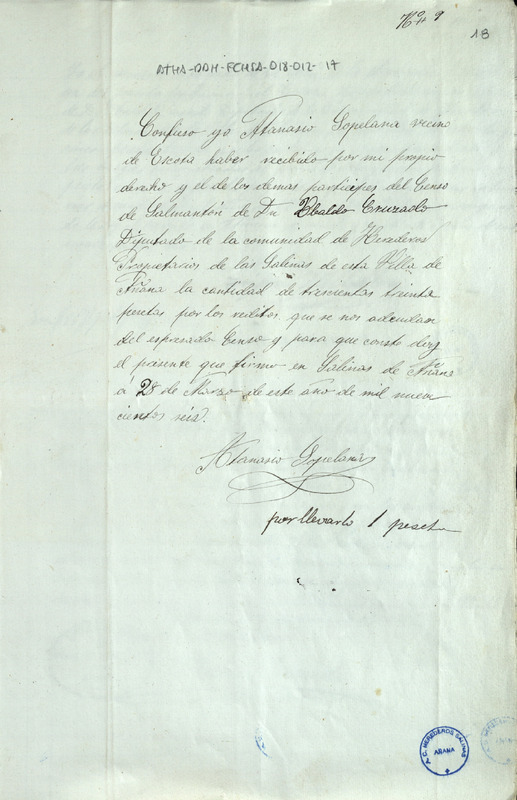 Nº 9
18
ATHA-DAH-FCHSA-018-012-17
Confieso yo Atanasio Sopelana vecino
de Escota haber recibido por mi propio
derecho y el de los demas participes del Censo
de Salmantón de Dn Ubaldo Cruzado
Diputado de la comunidad de Herederos
Propietarios de las Salinas de esta Villa de
Añana la cantidad de trescientas treinta
pesetas por los reditos que se nos adeudan
del espresado Censo y para que conste doy
el presente que firmo en Salinas de Añana
á 28 de Marzo de este año de mil nuev
cientos seis.
Atanasio Sopelana
por llevarlo 1 peseta
C. HEREDEROS SALINAS
AÑANA